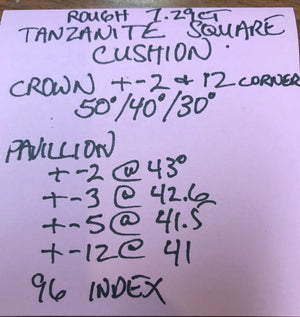 ROUGH 7.29CT
TANZANITE SQUARE
CUSHION.
CROWN +-2 & 12 CORNER
50°/40°/30°
PAVILLION
+-2 @ 43°
+-3 @ 42.6
+-5 @ 41.5
+-12 @ 41
96 INDEX